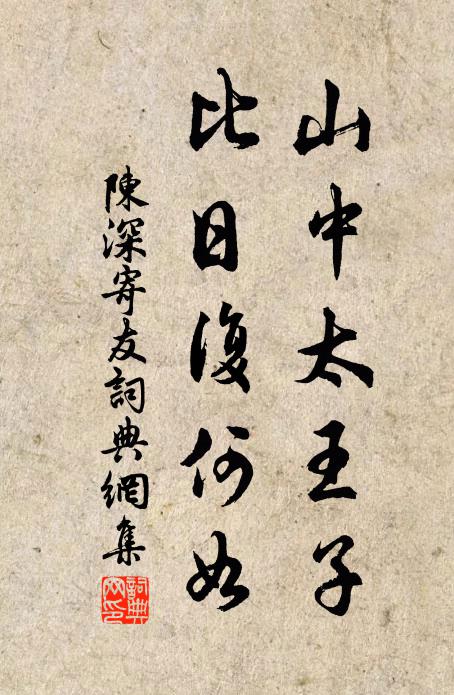 山中太王子
比日復何如
陳深寄友詞典網集
詞典
網印